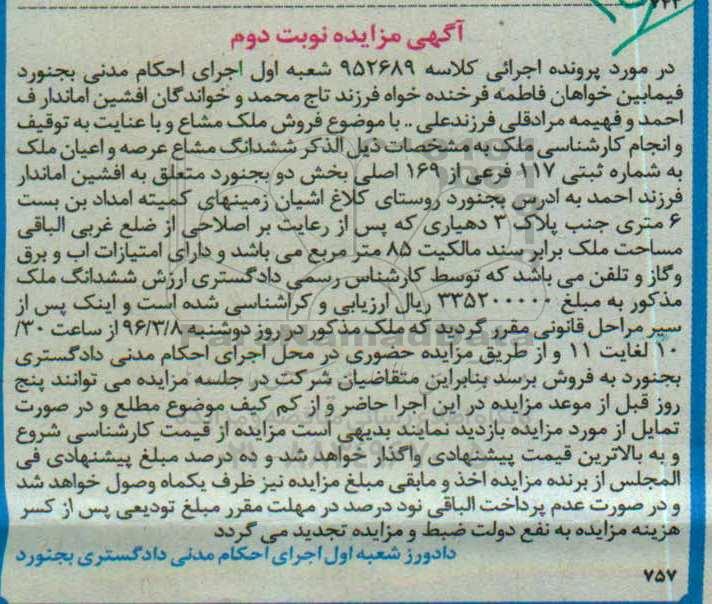 ۷۴۲
آگهی مزایده نوبت دوم
در مورد پرونده اجرائی کلاسه ۹۵۲۶۸۹ شعبه اول اجرای احکام مدنی بجنورد
فیمابین خواهان فاطمه فرخنده خواه فرزند تاج محمد و خواندگان افشین اماندار ف
احمد و فهیمه مرادقلی فرزندعلی .. با موضوع فروش ملک مشاع و با عنایت به توقیف
و انجام کارشناسی ملک به مشخصات ذیل الذکر ششدانگ مشاع عرصه و اعیان ملک
به شماره ثبتی ۱۱۷ فرعی از ۱۶۹ اصلی بخش دو بجنورد متعلق به افشین اماندار
فرزند احمد به ادرس بجنورد روستای کلاغ اشیان زمینهای کمیته امداد بن بست
۶ متری جنب پلاک ۳ دهیاری که پس از رعایت بر اصلاحی از ضلع غربی الباقی
مساحت ملک برابر سند مالکیت ۸۵ متر مربع می باشد و دارای امتیازات اب و برق
وگاز و تلفن می باشد که توسط کارشناس رسمی دادگستری ارزش ششدانگ ملک
مذکور به مبلغ ۳۳۵۲۰۰۰۰۰ ریال ارزیابی و کراشناسی شده است و اینک پس از
سیر مراحل قانونی مقرر گردید که ملک مذکور در روز دوشنبه ۹۶/۳/۸ از ساعت ۳۰/
۱۰ لغایت ۱۱ و از طریق مزایده حضوری در محل اجرای احکام مدنی دادگستری
بجنورد به فروش برسد بنابراین متقاضیان شرکت در جلسه مزایده می توانند پنج
روز قبل از موعد مزایده در این اجرا حاضر و از کم کیف موضوع مطلع و در صورت
تمایل از مورد مزایده بازدید نمایند بدیهی است مزایده از قیمت کارشناسی شروع
و به بالاترین قیمت پیشنهادی واگذار خواهد شد و ده درصد مبلغ پیشنهادی فی
المجلس از برنده مزایده اخذ و مابقی مبلغ مزایده نیز ظرف یکماه وصول خواهد شد
و در صورت عدم پرداخت الباقی نود درصد در مهلت مقرر مبلغ تودیعی پس از کسر
هزینه مزایده به نفع دولت ضبط و مزایده تجدید می گردد
دادورز شعبه اول اجرای احکام مدنی دادگستری بجنورد
۷۵۷